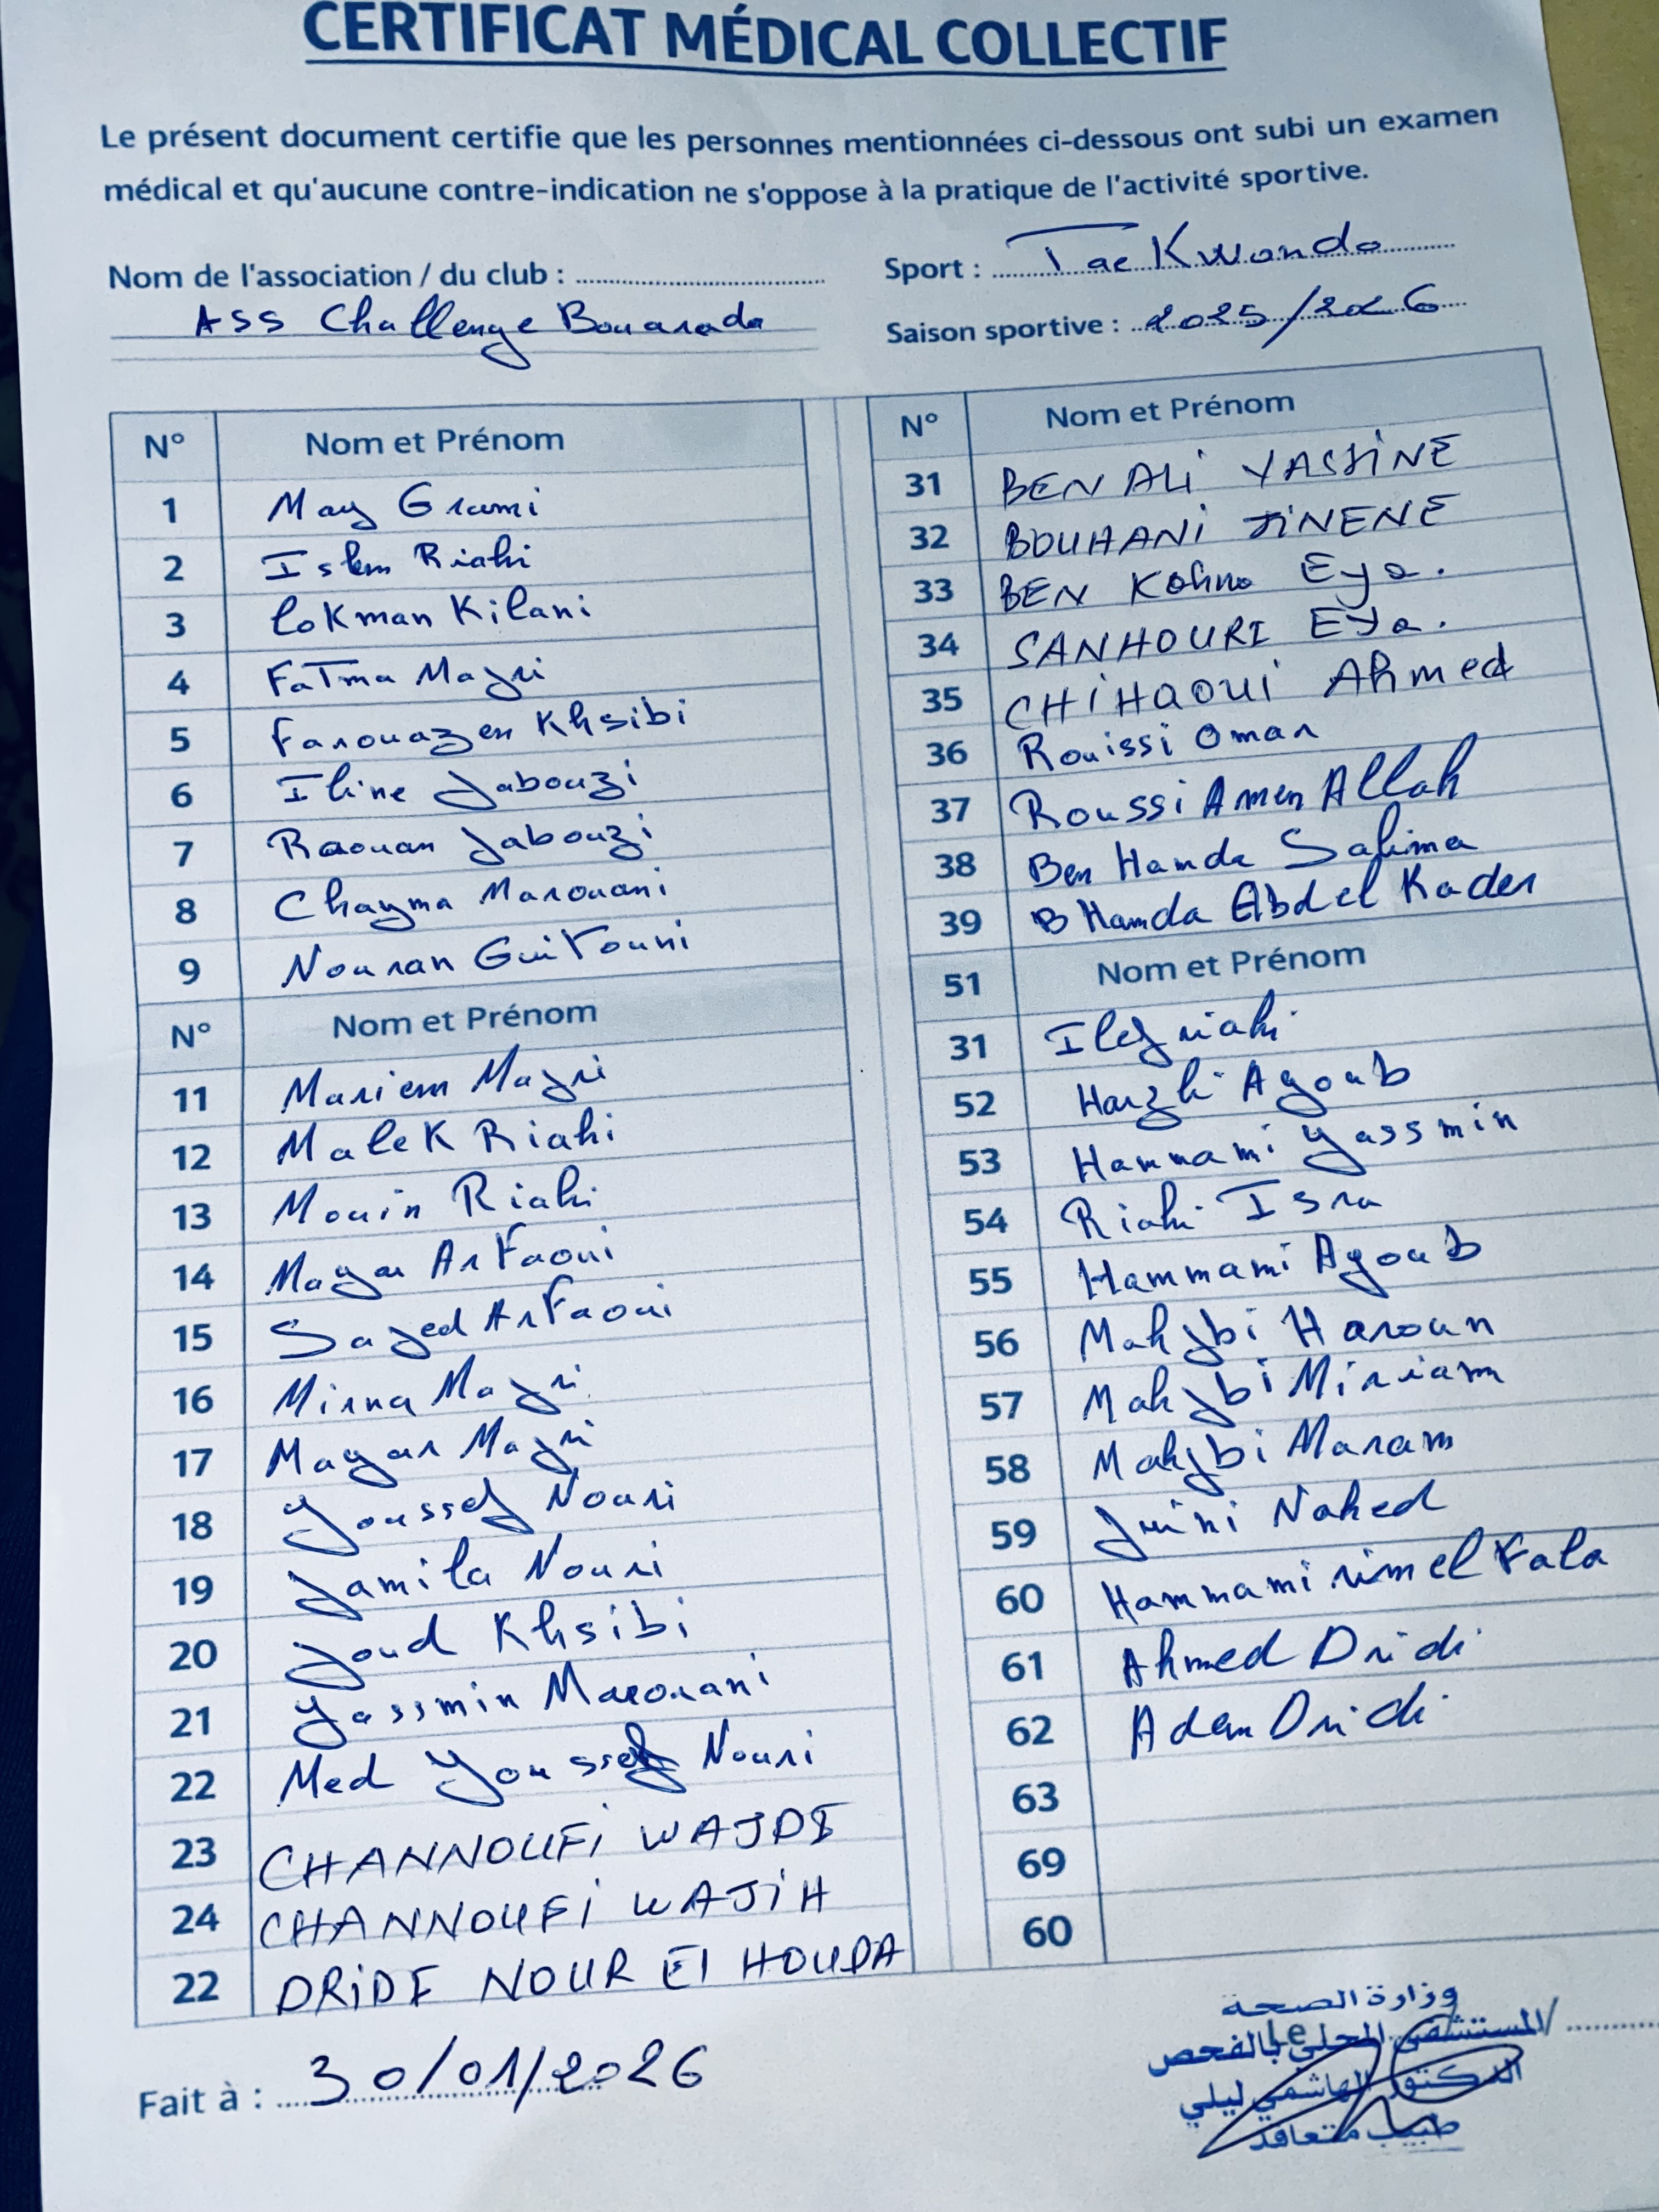 CERTIFICAT MÉDICAL COLLECTIF
Le présent document certifie que les personnes mentionnées ci-dessous ont subi un examen
médical et qu'aucune contre-indication ne s'oppose à la pratique de l'activité sportive.
Nom de l'association / du club :
ASS Challenge Bouarada
Sport : TaeKwondo
Saison sportive : 2025/2026
N° Nom et Prénom
1 May Grami
2 Islem Riahi
3 loKman Kilani
4 FaTma Majri
5 Farouazen Khsibi
6 Iline Jabouzi
7 Raouan Jabouzi
8 Chayma Marouani
9 Nouran GuiTouni
N° Nom et Prénom
11 Mariem Majri
12 MaleK Riahi
13 Mouin Riahi
14 Mayar ArFaoui
15 Sajed ArFaoui
16 Mirna Majri
17 Mayar Majri
18 Youssef Nouri
19 Jamila Nouri
20 Joud Khsibi
21 Yassmin Marouani
22 Med Youssef Nouri
23 CHANNOUFI WAJDI
24 CHANNOUFI WAJIH
22 DRIDI NOUR El HOUDA
N° Nom et Prénom
31 BEN ALI YASSINE
32 BOUHANI JINENE
33 BEN Eya.
34 SANHOURI Eya.
35 CHIHAOUI Ahmed
36 Rouissi Omar
37 Roussi Amen Allah
38 Ben Hamda Salima
39 B Hamda Abdel Kader
51 Nom et Prénom
31 Ilef riahi
52 Harzli Ayoub
53 Hammami Yassmin
54 Riahi Isra
55 Hammami Ayoub
56 Mahjbi Haroun
57 Mahjbi Miriam
58 Mahjbi Maram
59 Juini Nahed
60 Hammami rim el Fala
61 Ahmed Dridi
62 Adem Dridi
63
69
60
Fait à : 30/01/2026
Le
وزارة الصحة
المستشفى المحلي بالفحص
الدكتور الهاشمي ليلي
طبيب متعاقد